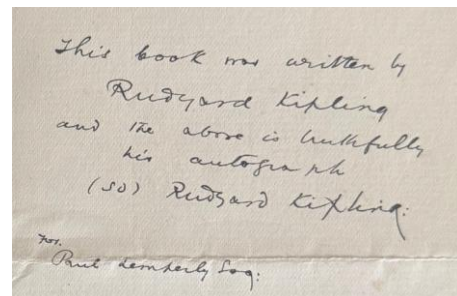 This book was written by
Rudyard Kipling
and the above is truthfully
his autograph
(so) Rudyard Kipling:
For.
Paul Lemperly Esq: